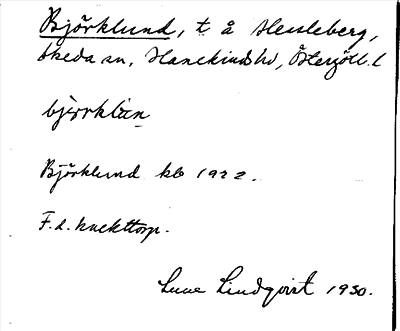 Björklund, t å Hessleberg,
Skeda sn, Hanekinds hd, Östergötl. l
bjö̀rklɯn
Björklund kb 1922.
F.d. knekttorp.
Lindqvist 1930.